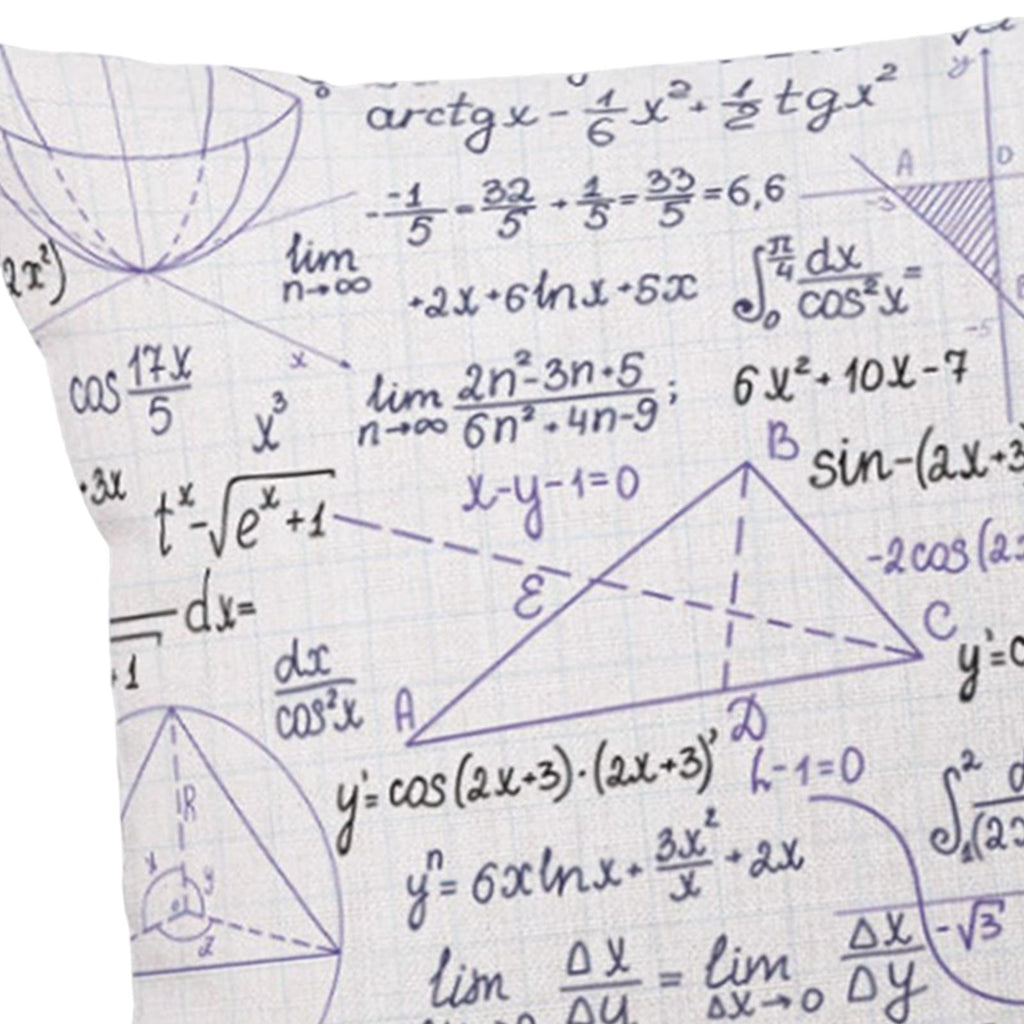 arctgx - 1/6 x² + 1/2 tgx²
y
A
D
-3
- -1/5 - 32/5 + 1/5 = 33/5 = 6,6
2x²)
lim n→∞
+2x+6lnx+5x
∫₀^(π/4) dx/cos²x =
-5
x
cos 17x/5
x³
lim n→∞ (2n²-3n+5)/(6n²+4n-9) ;
6x²+10x-7
B
sin-(2x+3
+3x
tˣ-√(eˣ+1)
x-y-1=0
-2cos(2x
E
C
dx=
+1
y'=c
dx/cos²x
A
D
y'=cos(2x+3)·(2x+3)'
h-1=0
∫₁² d/(2x
R
yⁿ=6xlnx+3x²/x+2x
x
y
z
lim Δx/Δy = lim Δx→0 Δx/Δy
-√3